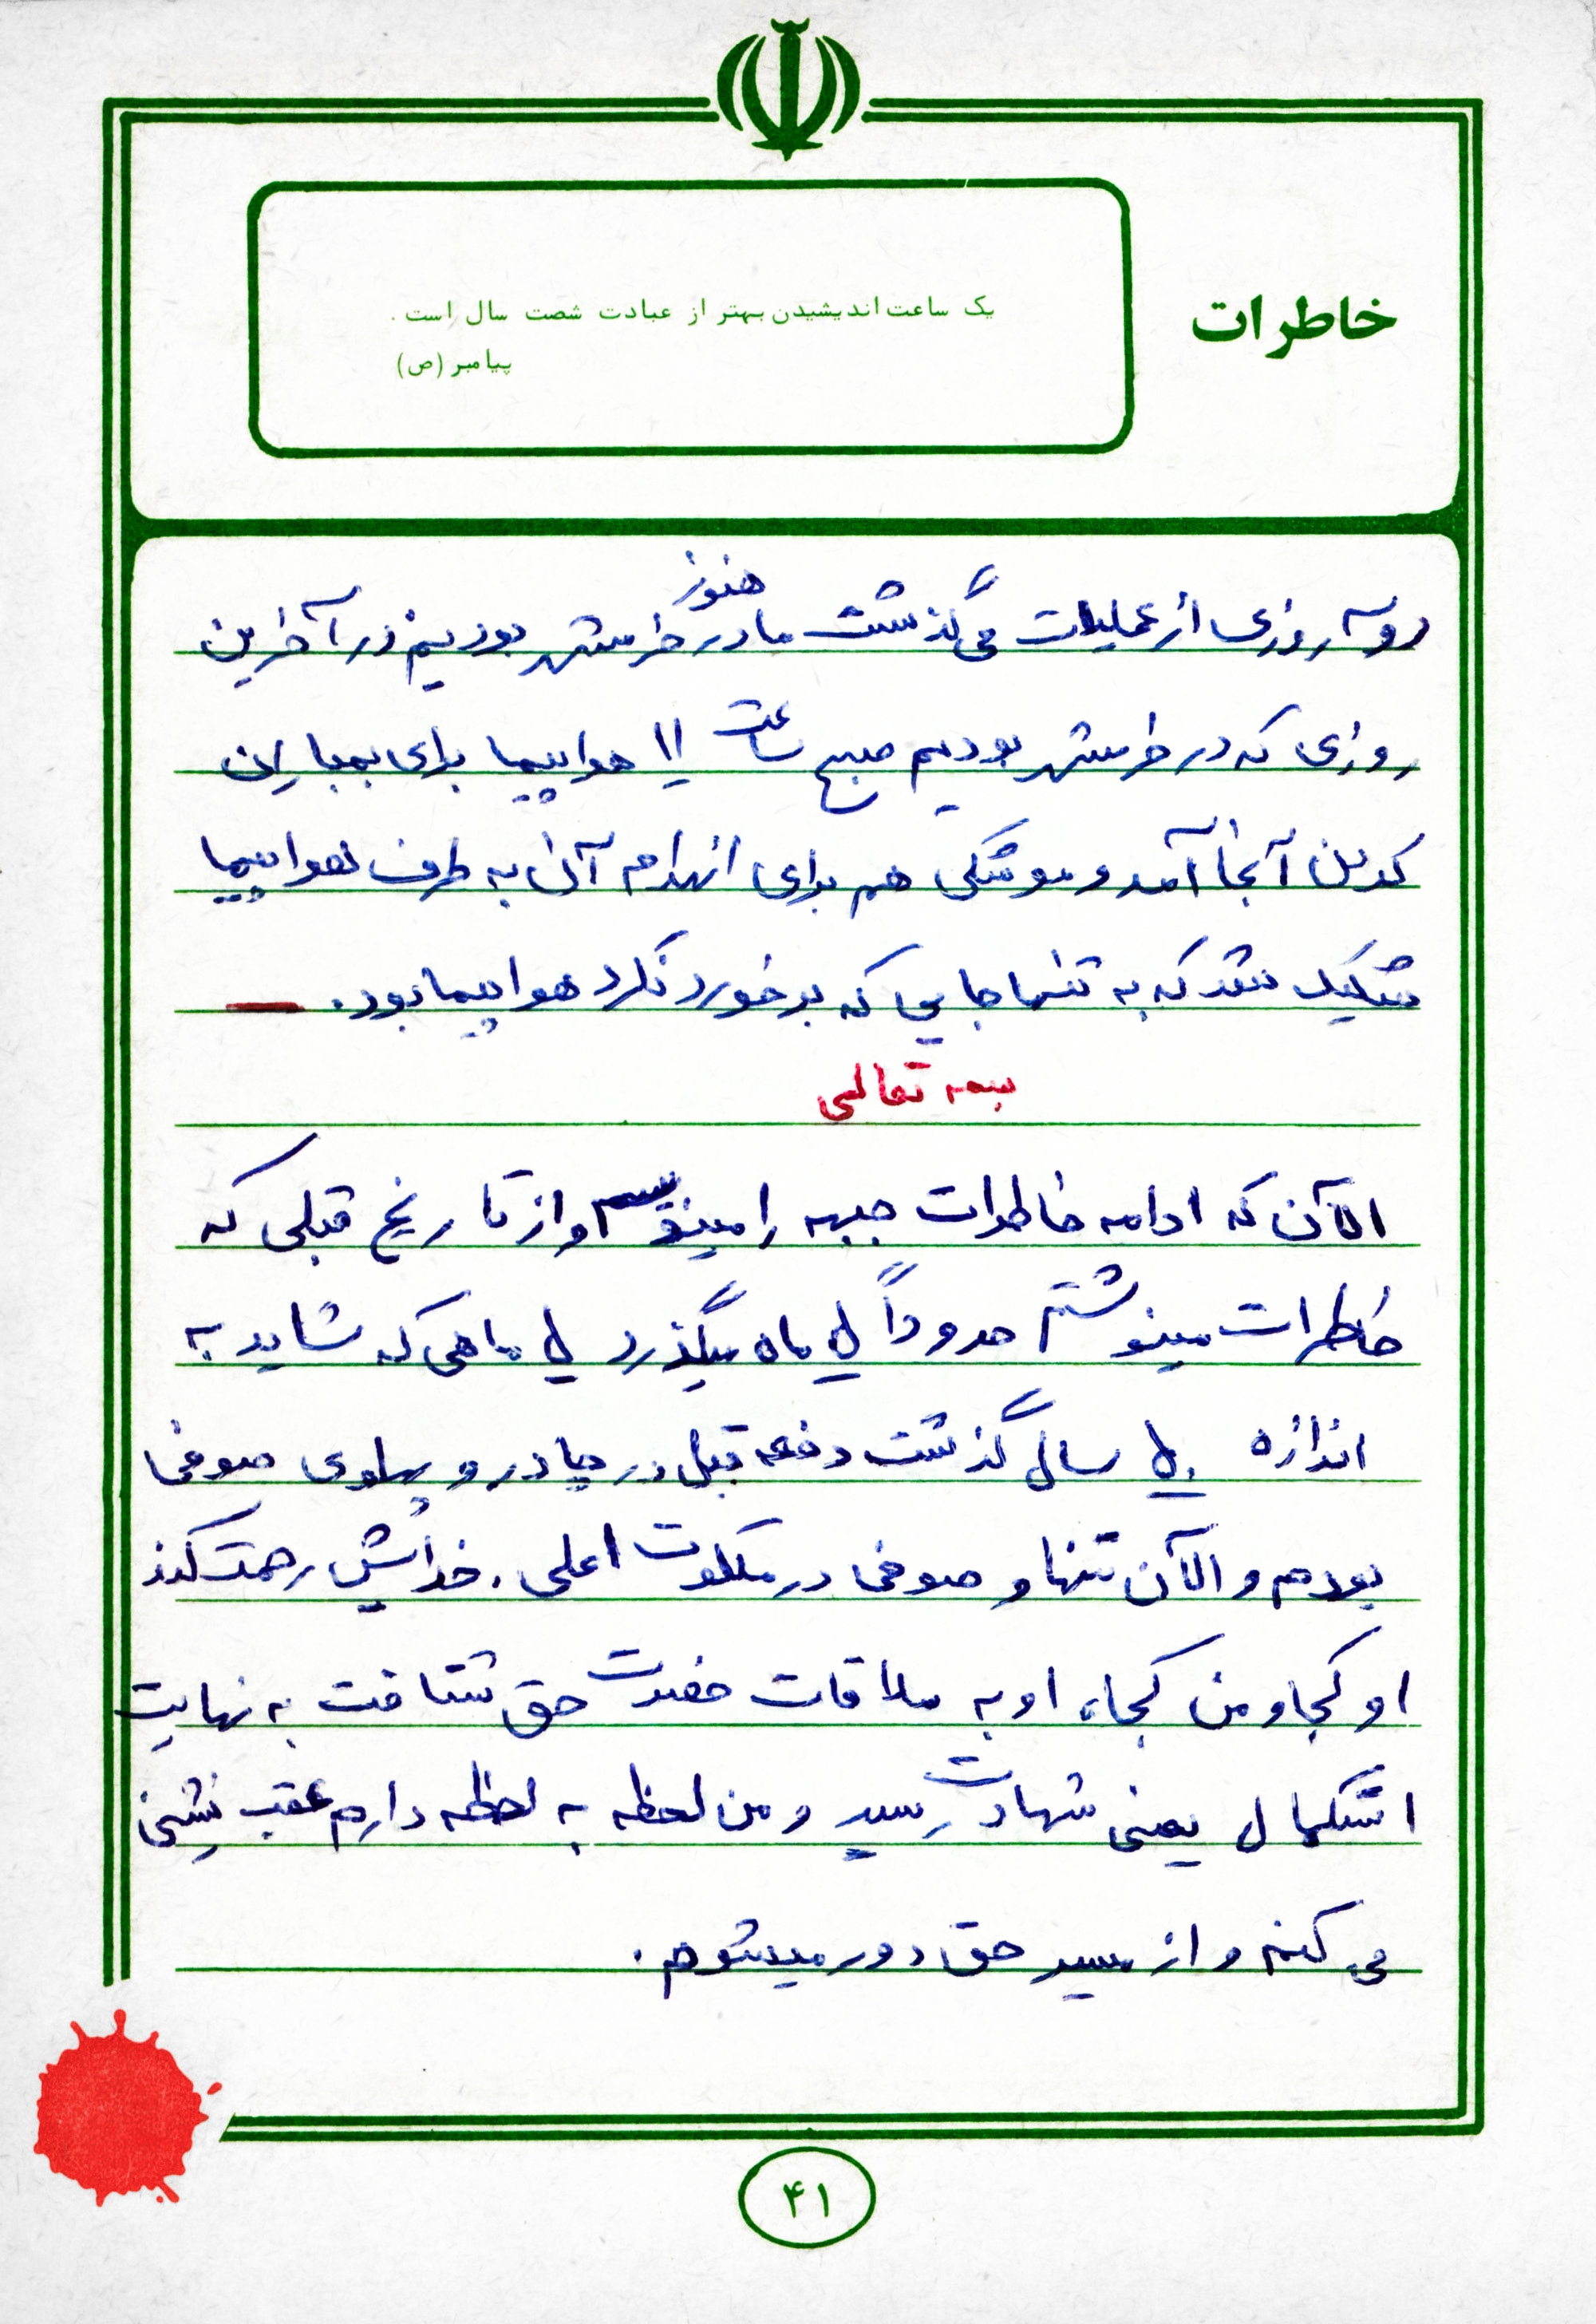 خاطرات
یک ساعت اندیشیدن بهتر از عبادت شصت سال است.
پیامبر (ص)
دو سه روزی از عملیات می گذشت ما هنوز در خرمشهر بودیم در آخرین
روزی که در خرمشهر بودیم صبح ساعت ۱۱ هواپیما برای بمباران
کردن آنجا آمد و موشکی هم برای انهدام آن به طرف هواپیما
شلیک شد که به تنها جایی که برخورد نکرد هواپیما بود.
بسمه تعالی
الآن که ادامه خاطرات جبهه را مینویسم و از تاریخ قبلی که
خاطرات مینوشتم حدوداً ماه میگذرد ماهی که شاید به
اندازه سال گذشت دفعه قبل در چادر و پهلوی صوفی
بودم و الآن تنها و صوفی در ملکوت اعلی. خدایش رحمت کند
او کجا و من کجا، او به ملاقات حضرت حق شتافت به نهایت
استکمال یعنی شهادت رسید و من لحظه به لحظه دارم عقب نشینی
می کنم و از مسیر حق دور میشوم.
۴۱